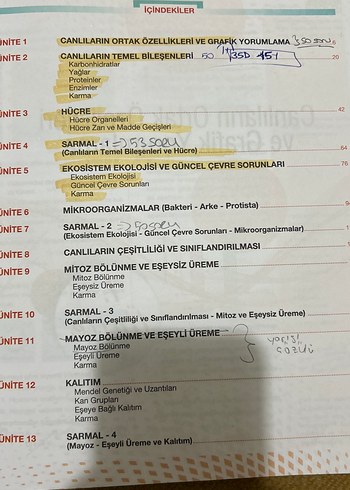 İÇİNDEKİLER
ÜNİTE 1 CANLILARIN ORTAK ÖZELLİKLERİ VE GRAFİK YORUMLAMA
ÜNİTE 2 CANLILARIN TEMEL BİLEŞENLERİ 50 35D 45Y 20
Karbonhidratlar
Yağlar
Proteinler
Enzimler
Karma
ÜNİTE 3 HÜCRE 42
Hücre Organelleri
Hücre Zarı ve Madde Geçişleri
ÜNİTE 4 SARMAL - 1 => 53 soru 64
(Canlıların Temel Bileşenleri ve Hücre)
ÜNİTE 5 EKOSİSTEM EKOLOJİSİ VE GÜNCEL ÇEVRE SORUNLARI 76
Ekosistem Ekolojisi
Güncel Çevre Sorunları
Karma
ÜNİTE 6 MİKROORGANİZMALAR (Bakteri - Arke - Protista)
ÜNİTE 7 SARMAL - 2
(Ekosistem Ekolojisi - Güncel Çevre Sorunları - Mikroorganizmalar)
ÜNİTE 8 CANLILARIN ÇEŞİTLİLİĞİ VE SINIFLANDIRILMASI
ÜNİTE 9 MİTOZ BÖLÜNME VE EŞEYSİZ ÜREME
Mitoz Bölünme
Eşeysiz Üreme
Karma
ÜNİTE 10 SARMAL - 3
(Canlıların Çeşitliliği ve Sınıflandırılması - Mitoz ve Eşeysiz Üreme)
ÜNİTE 11 MAYOZ BÖLÜNME VE EŞEYLİ ÜREME
Mayoz Bölünme
Eşeyli Üreme
Karma
ÜNİTE 12 KALITIM
Mendel Genetiği ve Uzantıları
Kan Grupları
Eşeye Bağlı Kalıtım
Karma
ÜNİTE 13 SARMAL - 4
(Mayoz - Eşeyli Üreme ve Kalıtım)